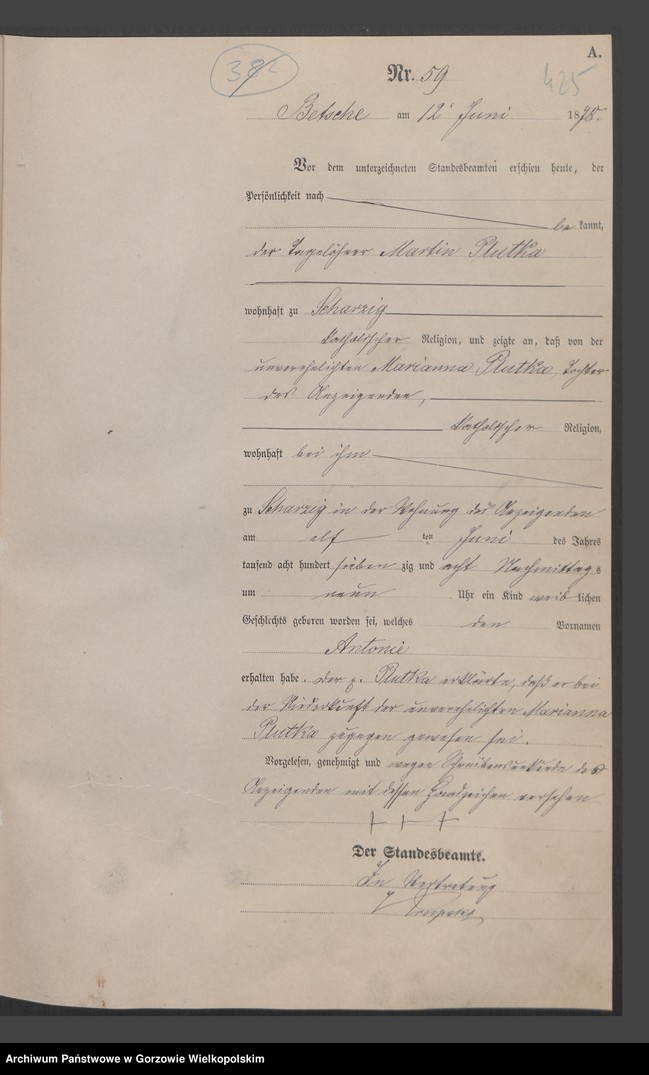 A.
Nr. 59
425
Betsche am 12 Juni 1878.
Vor dem unterzeichneten Standesbeamten erschien heute, der
Persönlichkeit nach
be kannt,
der Tagelöhner Martin Plutka
wohnhaft zu Scharzig
katholischer Religion, und zeigte an, daß von der
unverehelichten Marianna Plutka, Tochter
des Anzeigenden,
katholischer Religion,
wohnhaft bei ihm
zu Scharzig in der Wohnung des Anzeigenden
am elf ten Juni des Jahres
tausend acht hundert sieben zig und acht Nachmittags
um neun Uhr ein Kind weib lichen
Geschlechts geboren worden sei, welches den Vornamen
Antonie
erhalten habe. Der p. Plutka erklärte, daß er bei
der Niederkunft der unverehelichten Marianna
Plutka zugegen gewesen sei.
Vorgelesen, genehmigt und wegen Schreibensunkunde des
Anzeigenden mit dessen Handzeichen versehen
+ + +
Der Standesbeamte.
In Vertretung
Archiwum Państwowe w Gorzowie Wielkopolskim